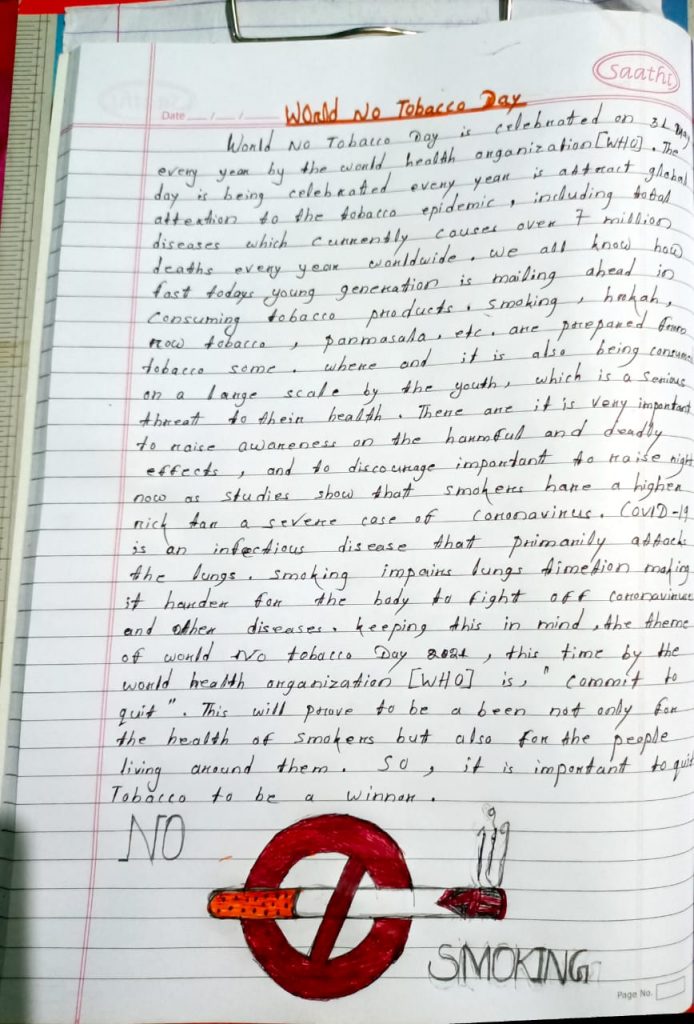 Saathi
Date __/__/__
World No Tobacco Day
World No Tobacco Day is celebrated on 31 May
every year by the world health organization [WHO]. The
day is being celebrated every year is attract global
attention to the tobacco epidemic, including total
diseases which currently causes over 7 million
deaths every year worldwide. we all know how
fast todays young generation is mailing ahead in
consuming tobacco products. smoking, hokah,
row tobacco, panmasala, etc. are prepared from
tobacco some. where and it is also being consume
on a large scale by the youth, which is a serious
threat to their health. There are it is very important
to raise awareness on the harmful and deadly
effects, and to discourage important to raise right
now as studies show that smokers have a higher
rick tan a severe case of coronavirus. COVID-19
is an infectious disease that primarily attack
the lungs. smoking impairs lungs timetion making
it harder for the body to fight off coronavirus
and other diseases. keeping this in mind, the theme
of world No tobacco Day 2021, this time by the
world health organization [WHO] is, "commit to
quit". This will prove to be a been not only for
the health of smokers but also for the people
living around them. SO, it is important to quit
Tobacco to be a winnor.
NO
SMOKING
Page No.